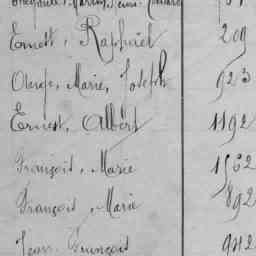 Ernest, Raphaël 209
Marie, Joseph 923
Ernest, Albert 1192
François, Marie 1562
François, Marie 892
Jean François 942